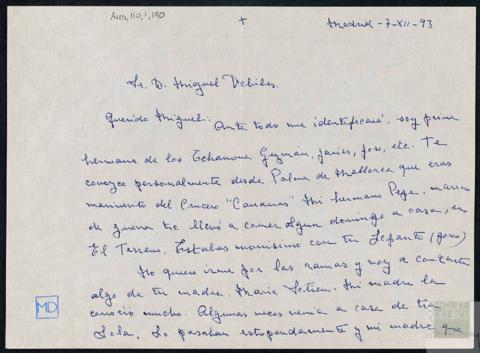 AMD, 110, 1, 190
+
Madrid - 7-XII-93
Sr. D. Miguel Delibes.
Querido Miguel: Ante todo me identificaré, soy prima
hermana de los Echanove Guzmán, Javier, Jose, etc. Te
conozco personalmente desde Palma de Mallorca que eras
marinerito del Crucero "Canarias" Mi hermano Pepe, marino
de guerra te llevó a comer algun domingo a casa, en
El Terreno. Estabas monísimo con tu Lepanto (gorro)
No quiero irme por las ramas y voy a contarte
algo de tu madre. María Setien. Mi madre la
conocio mucho. Algunas veces venía a casa de tia
Lola. Lo pasaban estupendamente y mi madre que
MD